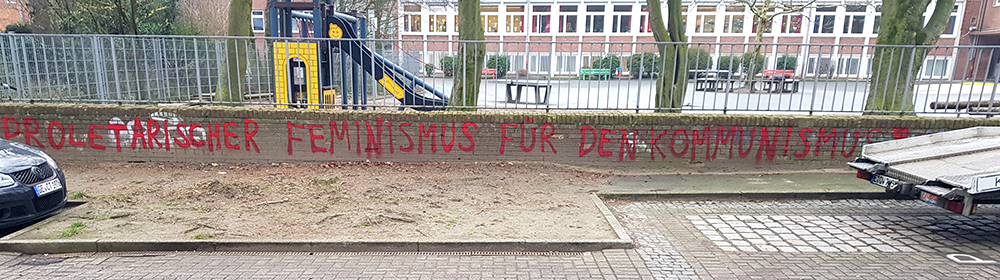 PROLETARISCHER FEMINISMUS FÜR DEN KOMMUNISMUS